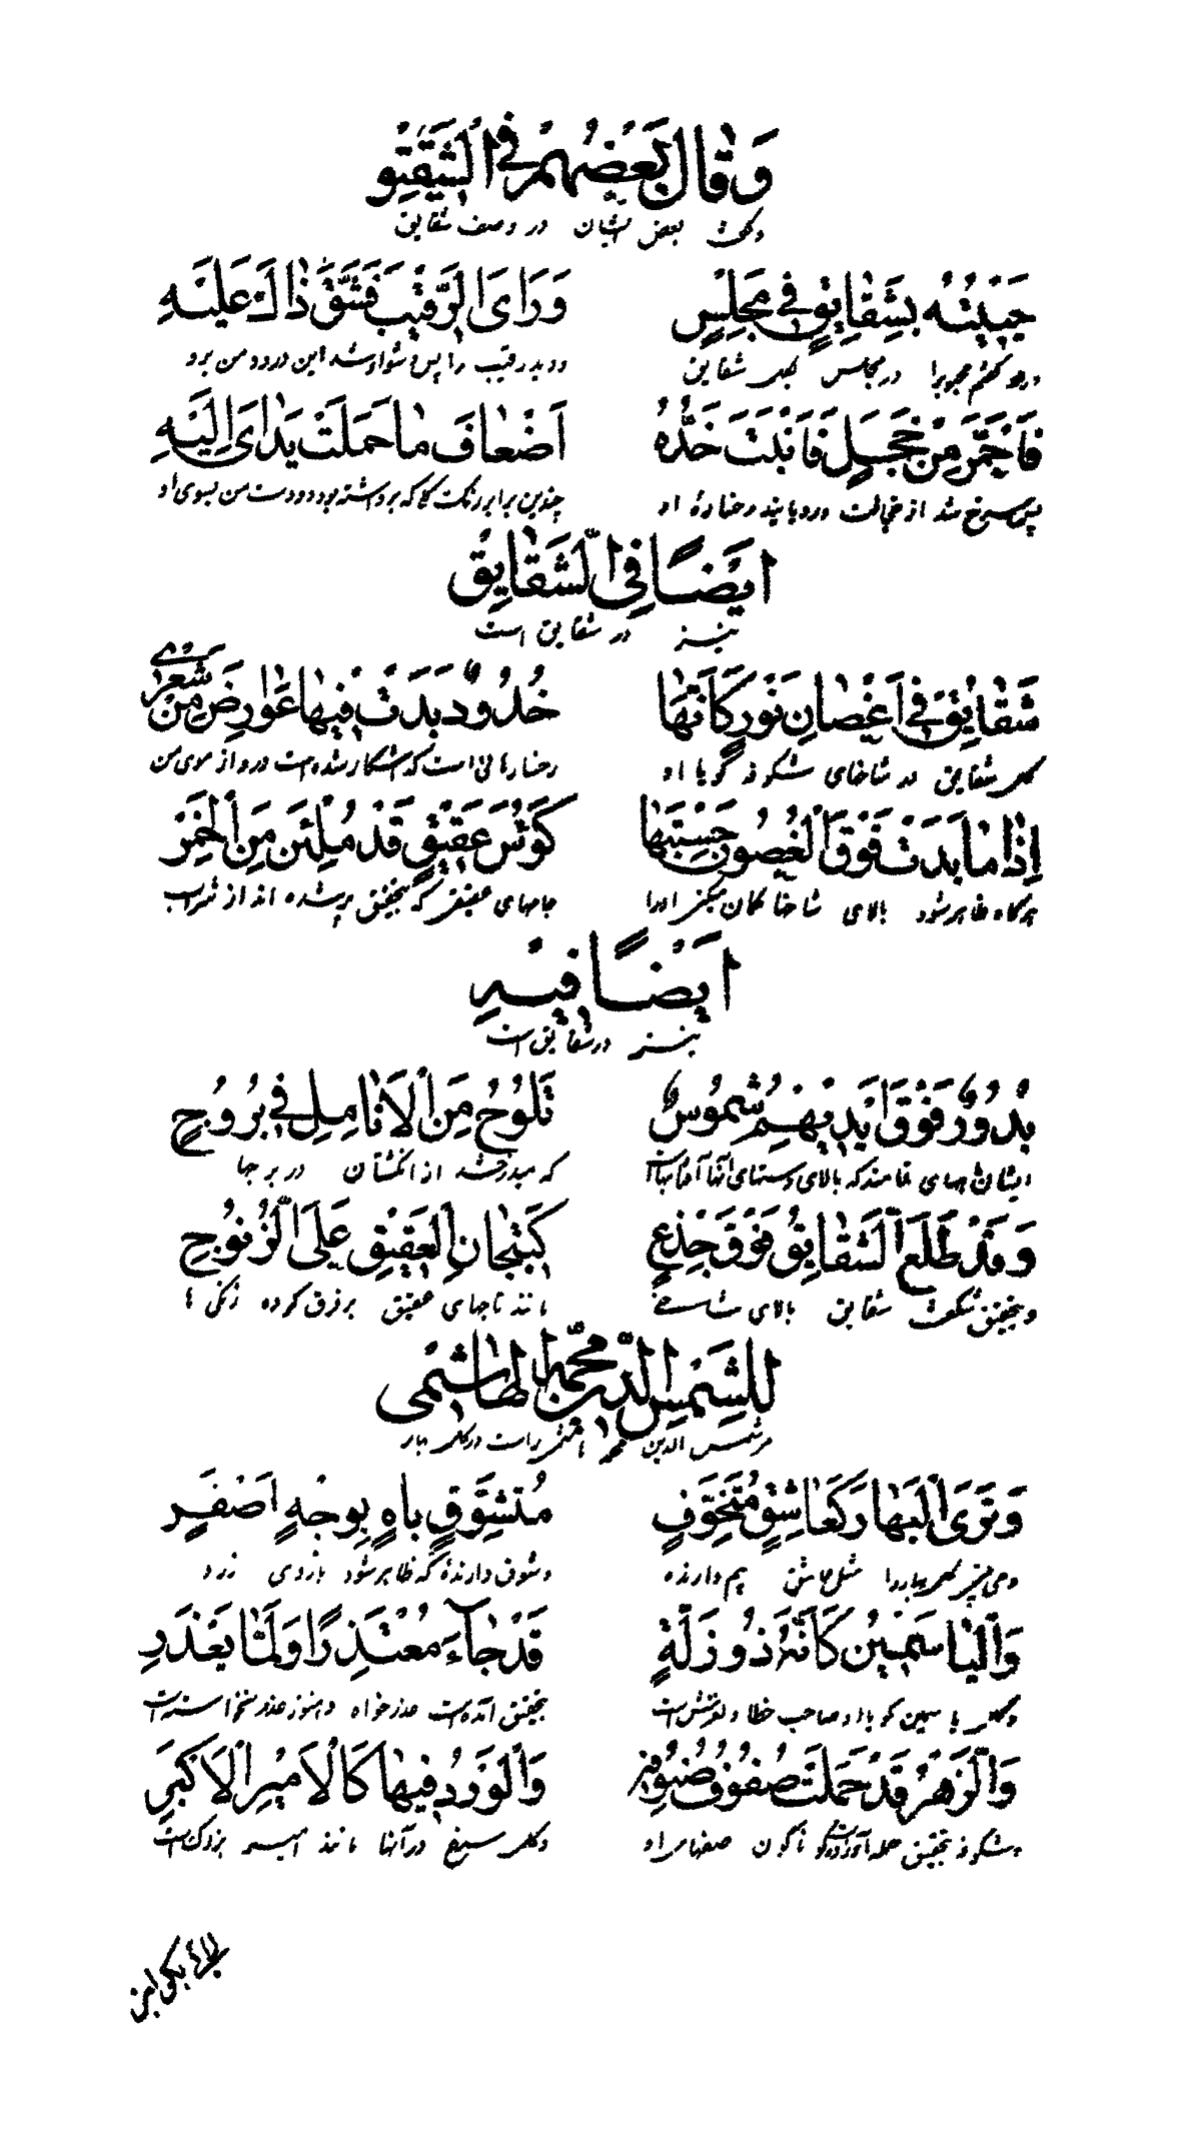 وَقٰالَ بَعْضُهُمْ فِي الشَّقِيْقِ
وگفت بعض ایشان در وصف شقایق
حَيَّيْتُهُ بِشَقٰايِقٍ فِي مَجْلِسٍ وَرَاَى الرَّقِيْبَ فَشَقَّ ذٰالَكَ عَلَيْهِ
در مجلس شقایق ودید رقیب را پس شوار شد این درود من برو
فَاحْمَرَّ مِنْ خَجَلٍ فَاَنْبَتَ خَدُّهُ اَضْعٰافَ مٰا حَمَلَتْ يَدٰاىَ اِلَيْهِ
پس سرخ شد از خجالت ورویانید رخسارهٔ او چندین برابر رنگ که برداشته بود دو دست من بسوی او
اَيْضًا فِي الشَّقٰايِقِ
نیز در شقایق است
شَقٰايِقُ فِي اَغْصٰانِ نَوْرٍ كَاَنَّهٰا خُدُودٌ بَدَتْ فِيْهٰا عَوٰارِضُ مِنْ شَعْرٍ
شقایق در شاخهای شکوفه گویا او رخسارهائی است که آشکار شده است درو از موی من
اِذٰا مٰا بَدَتْ فَوْقَ الْغُصُونِ حَسِبْتَهٰا كَوُسَ عَقِيْقٍ قَدْ مُلِئَنَ مِنَ الْخَمْرِ
هرگاه ظاهر شود بالای شاخها گمان میکنی اورا جامهای عقیقی که بتحقیق پر شده اند از شراب
اَيْضًا فِيْهِ
نیز در شقایق است
بُدُوْرٌ فَوْقَ اَيْدِيْهِمْ شُمُوْسٌ تَلُوْحُ مِنَ الْاَنٰامِلِ فِي بُرُوْجٍ
که بالای دستهای آنها که میدرخشد از انگشتان در برجها
وَقَدْ طَلَعَ الشَّقٰايِقُ فَوْقَ جِذْعٍ كَتِيْجٰانِ الْعَقِيْقِ عَلَى الزُّنُوْجِ
وبتحقیق شکفت شقایق بالای شاخی مانند تاجهای عقیق برفرق کرده زنگی
لِلشَّمْسِ الدِّيْنِ مُحَمَّدٍ الْهٰاشِمِى
مر شمس الدین محمد هاشمی راست در گل بهار
وَتَرَى الْبَهٰارَ كَعٰاشِقٍ مُتَخَوِّفٍ مُتَشَوِّقٍ بٰاهٍ بِوَجْهٍ اَصْفَرٍ
ومی بینی گل بهار را مثل عاشق بیم دارنده وشوق دارندهٔ که ظاهر شود با روی زرد
وَالْيٰاسَمِيْنُ كَاَنَّهُ ذُو زَلَّةٍ قَدْ جٰآءَ مُعْتَذِرًا وَلَمّٰا يَعْذَرِ
وگل یاسمین گویا او صاحب خطا ولغزش است بتحقیق آمده است عذرخواه وهنوز عذر نخواسته است
وَالزَّهْرُ قَدْ حَمَلَتْ صُفُوْفُ صُنُوْفِهِ وَالْوَرْدُ فِيْهٰا كَالْاَمِيْرِ الْاَكْبَرِ
وشکوفه بتحقیق گوناگون صفها مر او وگل سرخ در آنها مانند امیر بزرگ است